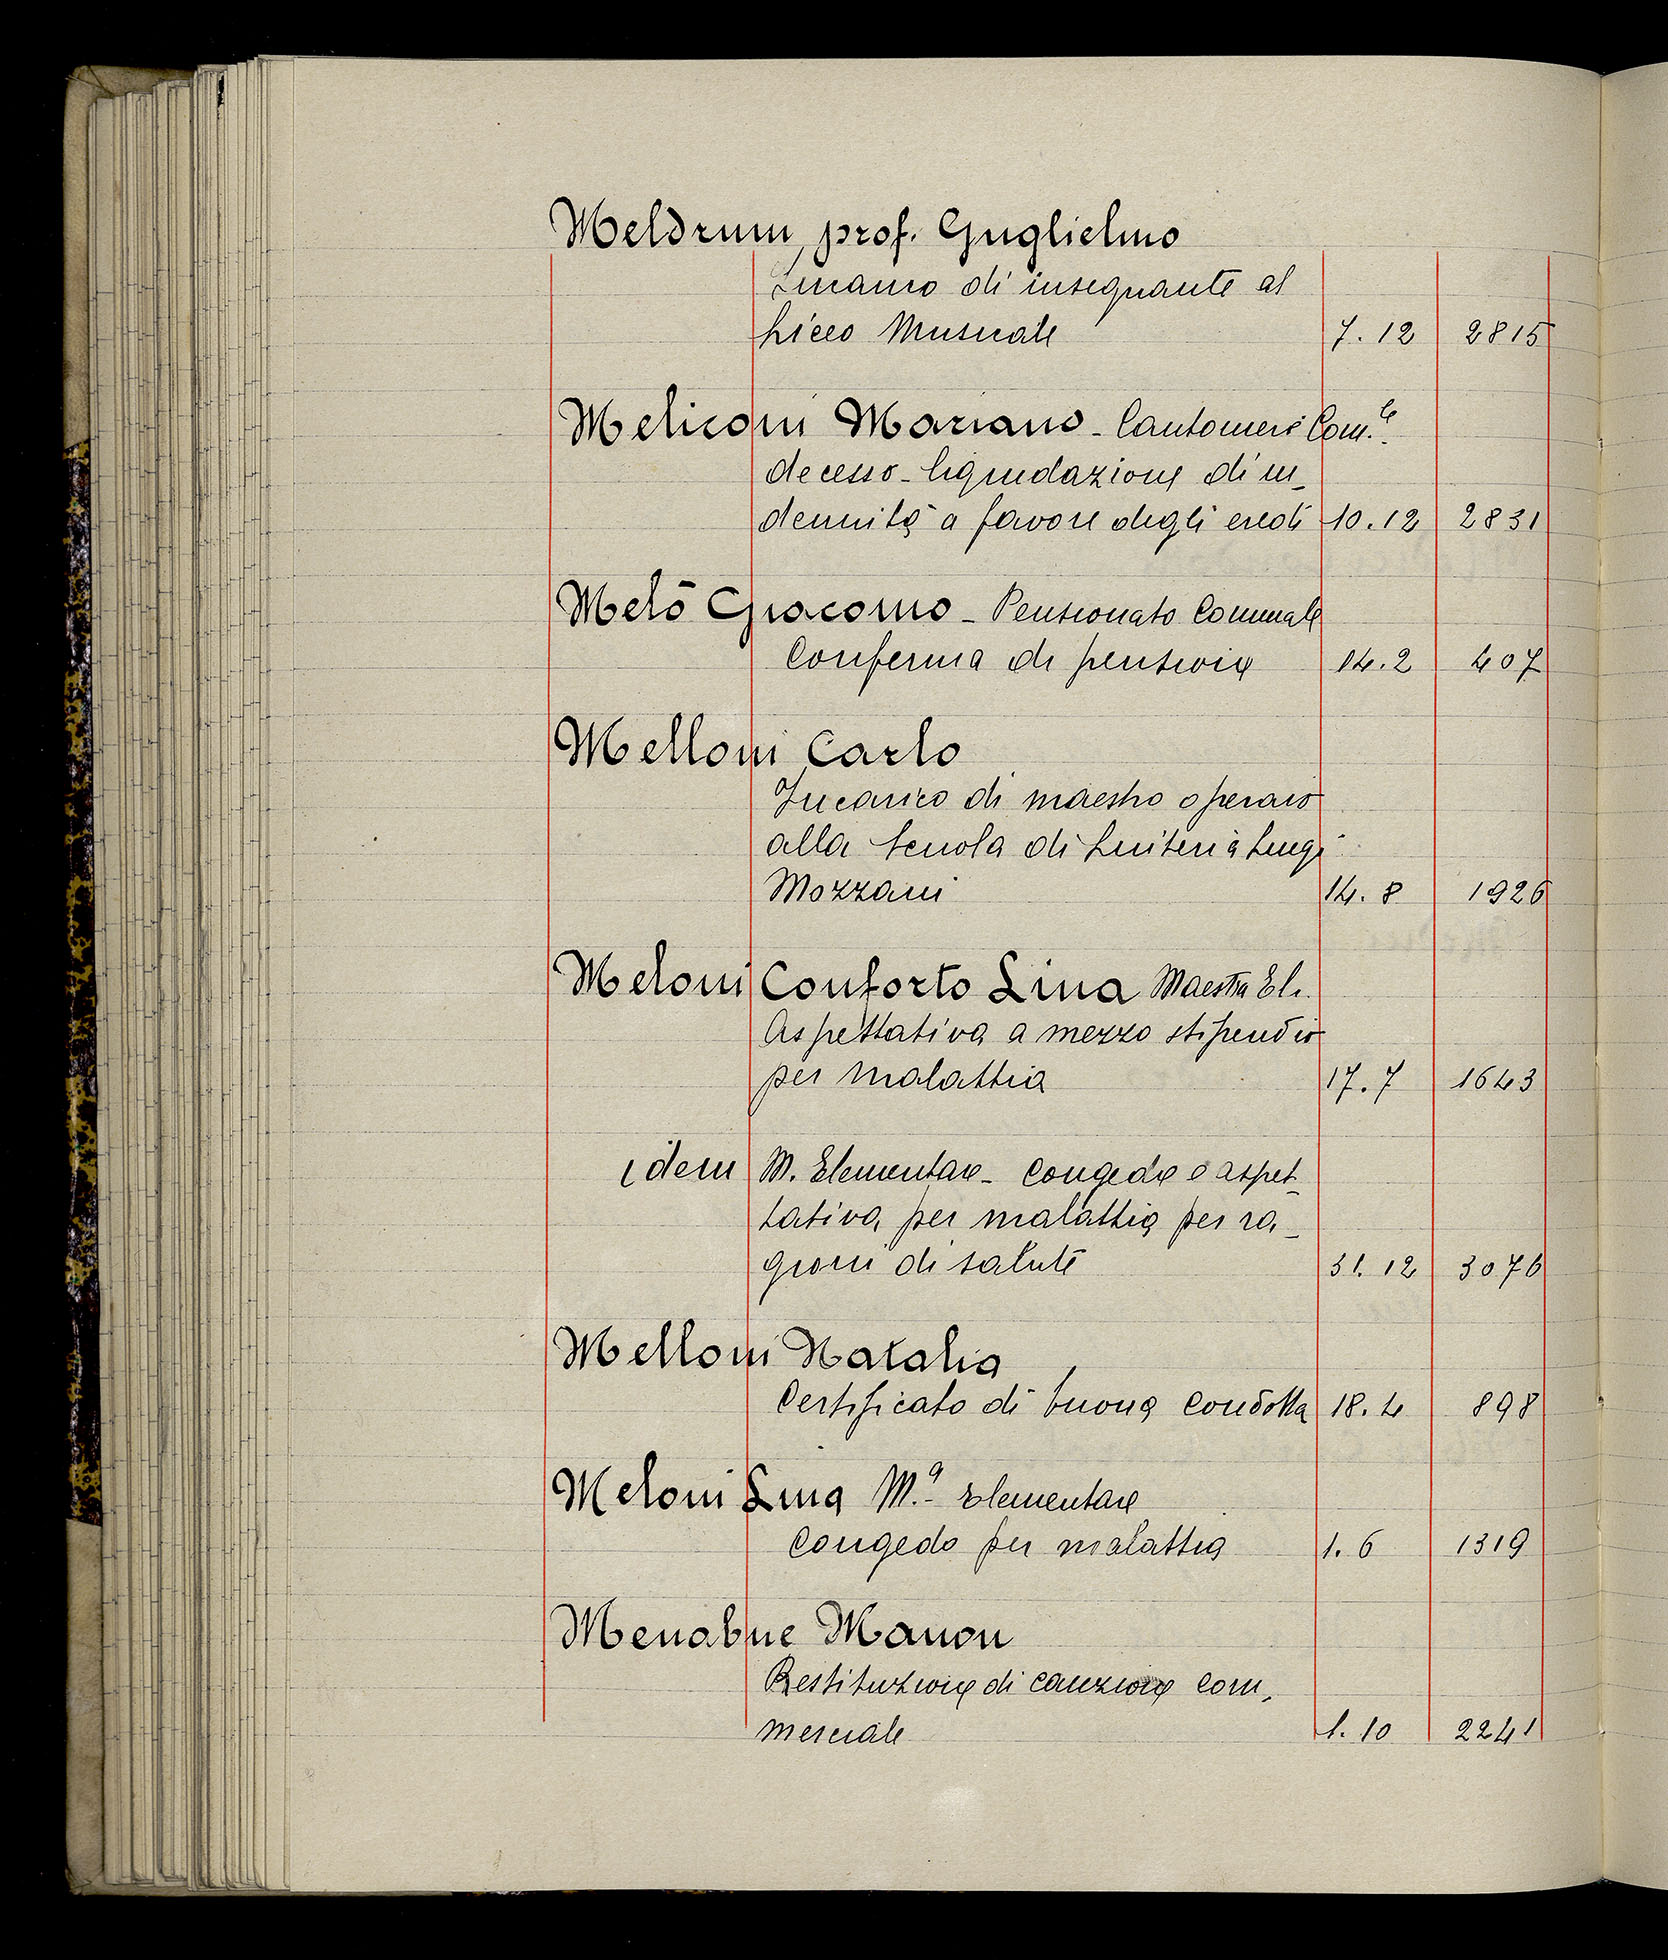 Meldrum prof. Guglielmo
Incarico di insegnante al
Liceo Musicale 7. 12 2815
Meliconi Mariano - Cantoniere Com.le
decesso - liquidazione di in-
dennità a favore degli eredi 10. 12 2831
Melò Giacomo - Pensionato Comunale
Conferma di pensione 14. 2 407
Melloni Carlo
Incarico di maestro operaio
alla Scuola di Liuteria Luigi
Mozzani 14. 8 1926
Meloni Conforto Lina Maestra El.
Aspettativa a mezzo stipendio
per malattia 17. 7 1643
idem M. Elementare - Congedo e aspet-
tativa per malattia per ra-
gioni di salute 31. 12 3076
Melloni Natalia
Certificato di buona condotta 18. 4 898
Meloni Lina M.a Elementare
Congedo per malattia 1. 6 1319
Menabue Manon
Restituzione di cauzione com-
merciale 1. 10 2241